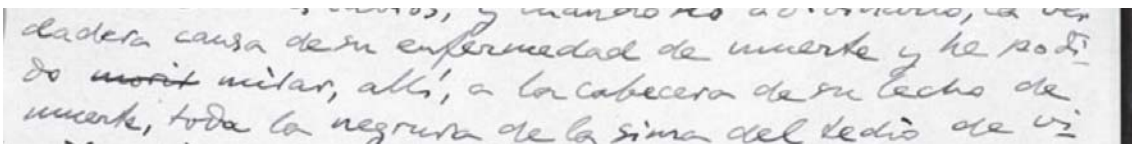 y cuando no adivinado, la ver
dadera causa de su enfermedad de muerte y he podi
do morir mirar, allí, a la cabecera de su lecho de
muerte, toda la negrura de la sima del tedio de vi